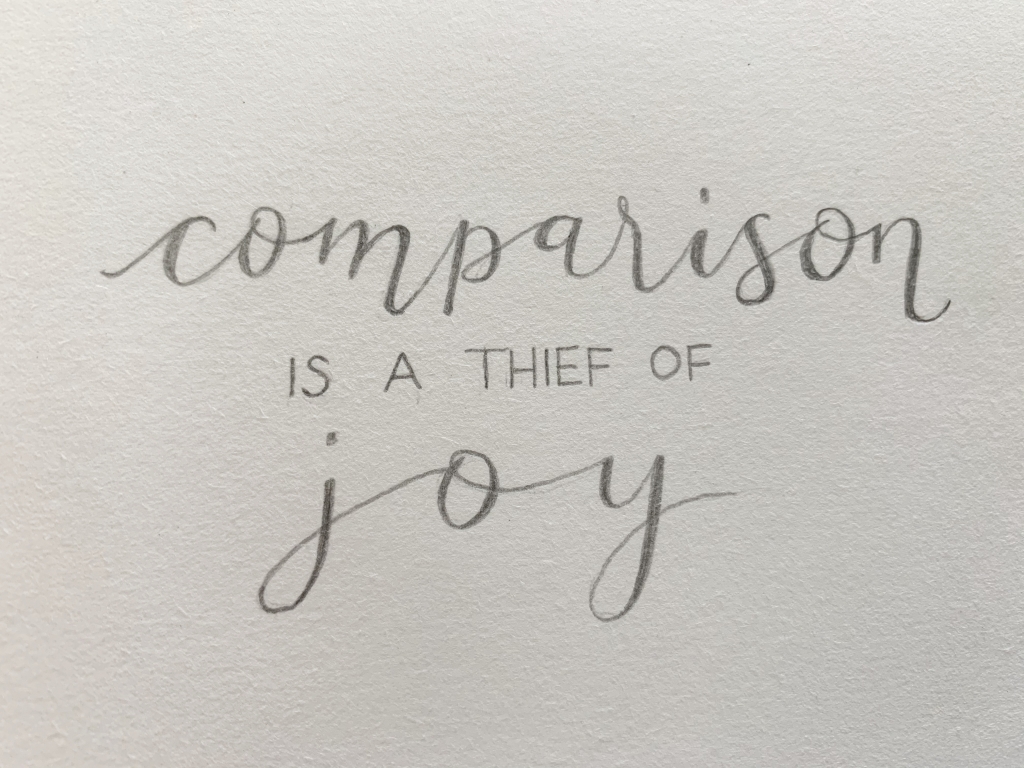 comparison
IS A THIEF OF
joy